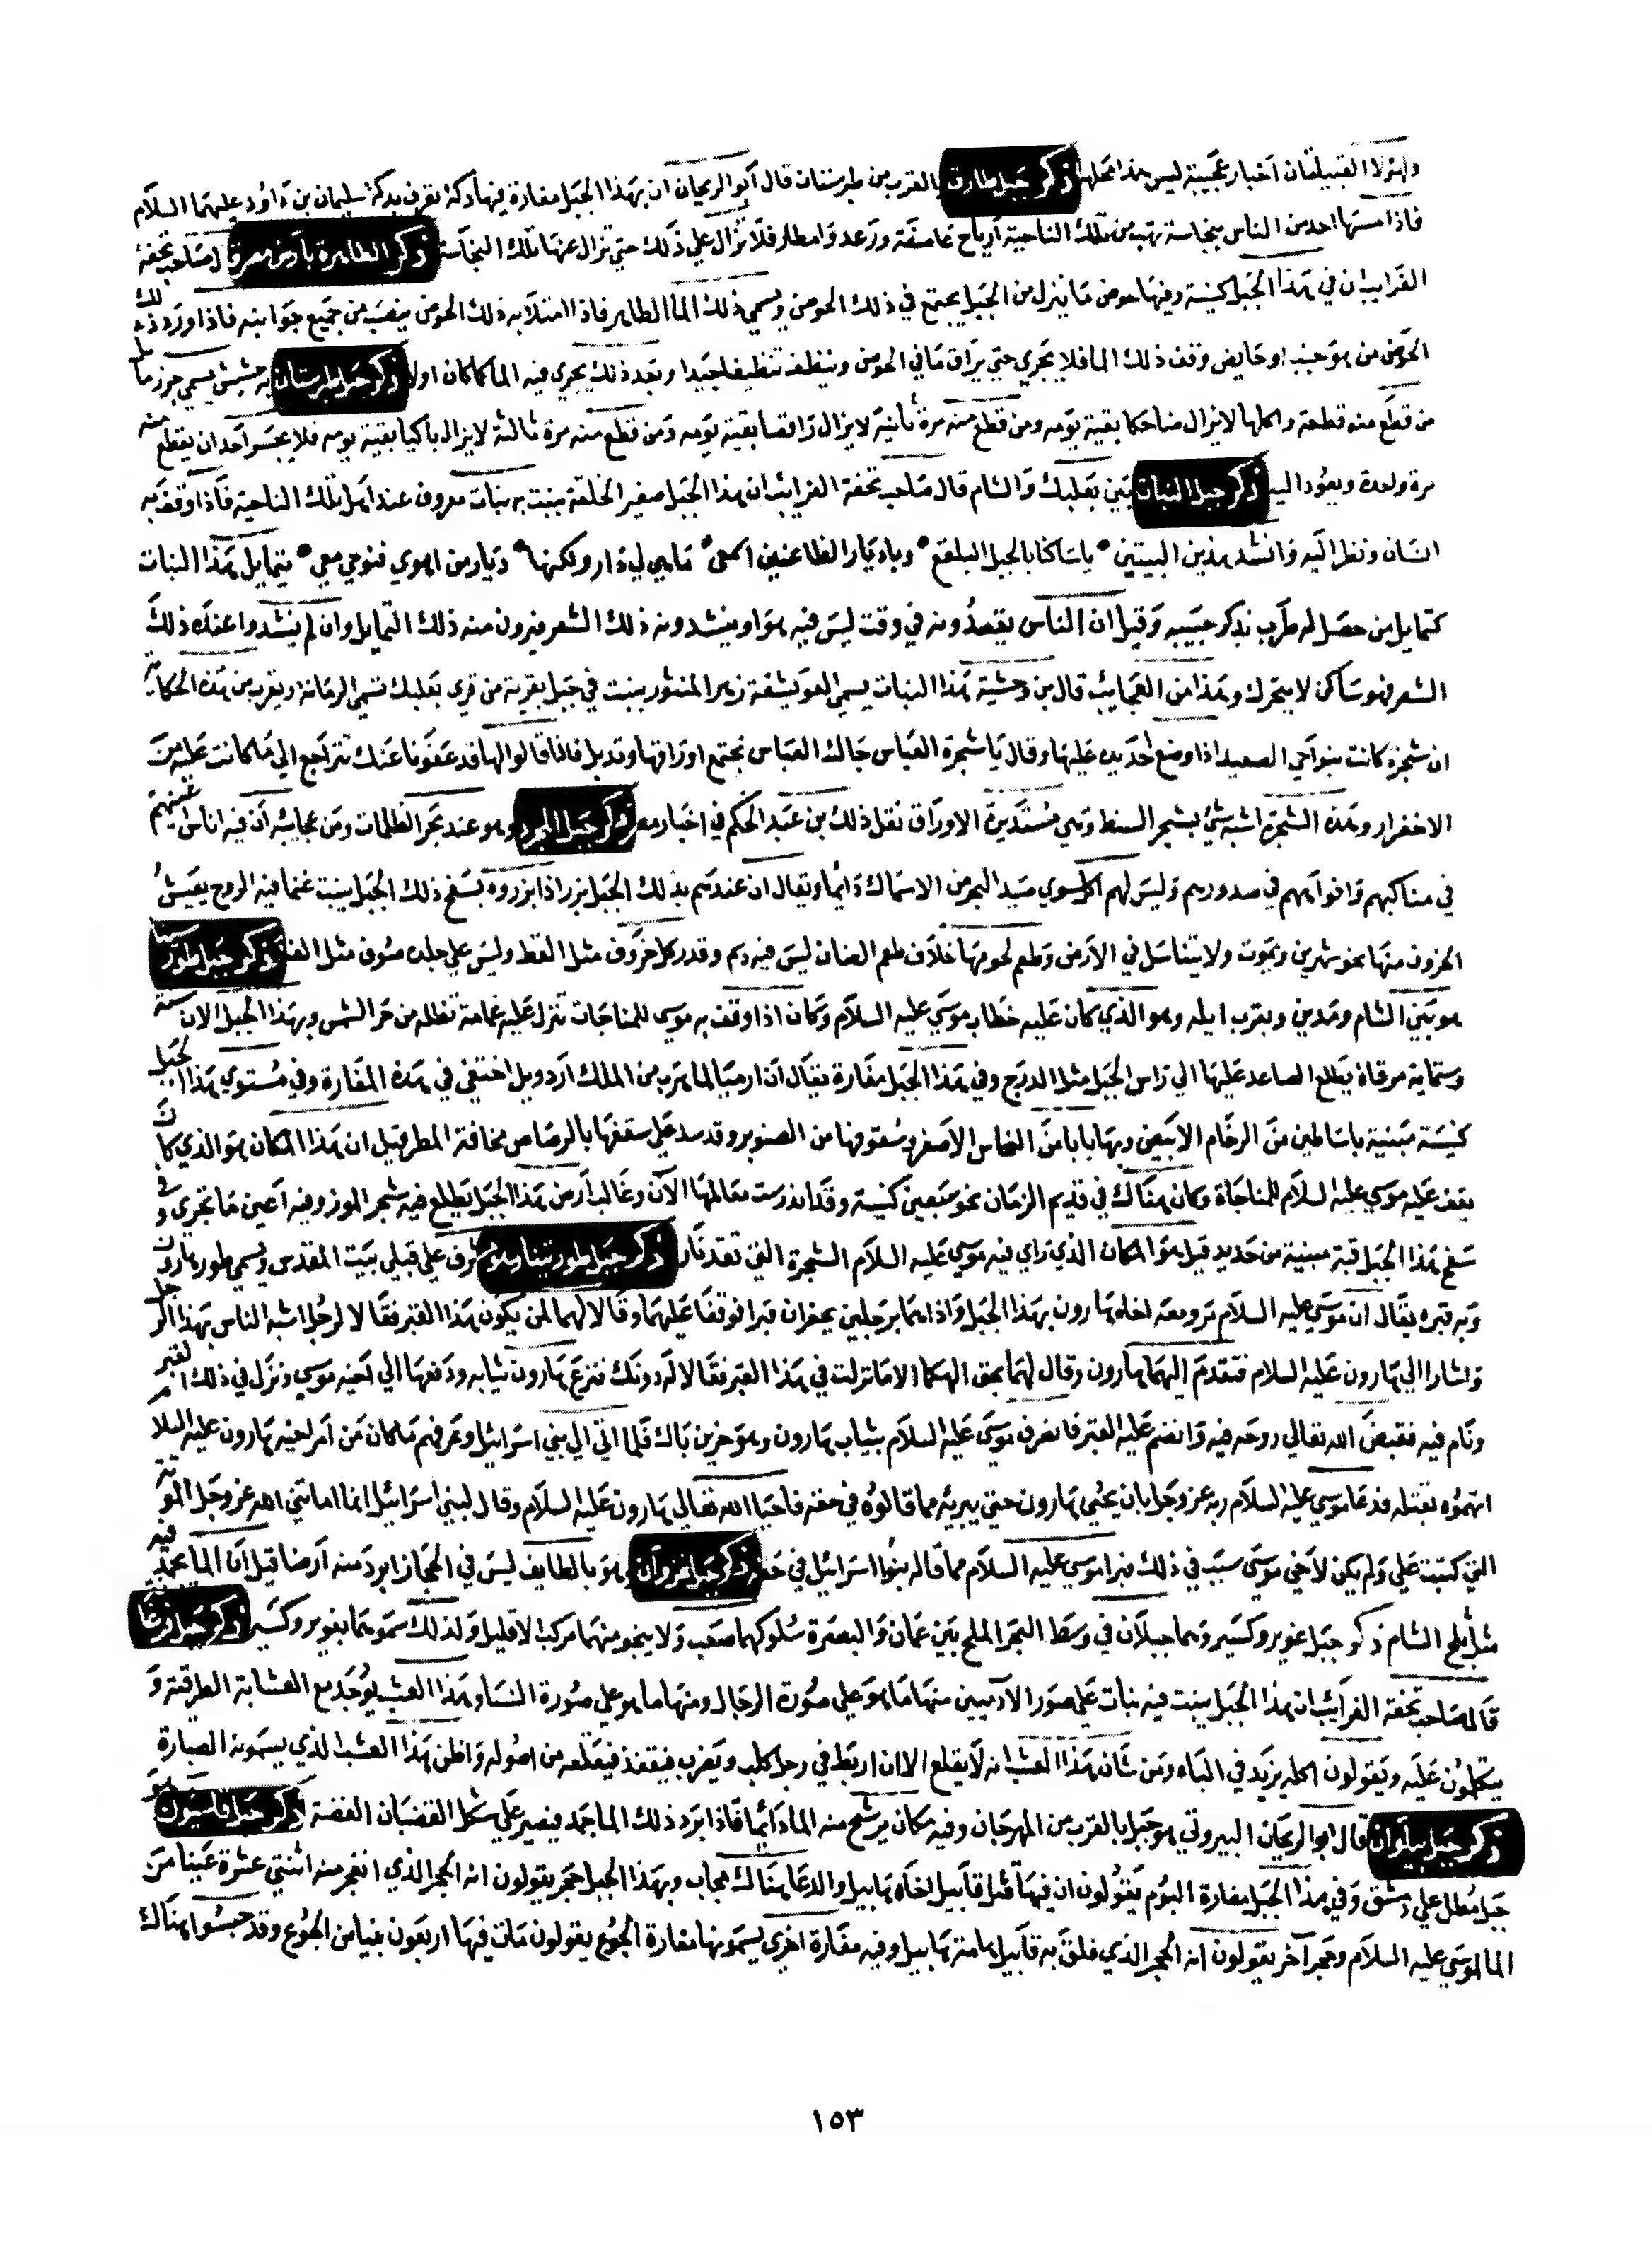 ولهؤلاء القبيلتان اخبار عجيبة ليس هذا محلها ذكر جبل طارق بالقرب من طبرستان قال ابو الريحان ان بهذا الجبل مغارة فيها دكة تعرف بدكة سليمان بن داود عليهما السلام
فاذا مسها احد من الناس بنجاسة تهب من تلك الناحية ارياح عاصفة ورعد وامطار فلا تزال علي ذلك حتي تزال عنها تلك النجاسة ذكر الطاهرة بارض مصر قال صاحب تحفة
الغرايب ان في هذا الجبل كنيسة وفيها حوض ما ينزل من الجبل يجتمع في ذلك الحوض ويسمي ذلك الما الطاهر فاذا امتلا به ذلك الحوض ينصب من جميع جوانبه فاذا ورد ذلك
الحوض من هو جنب او حايض وقف ذلك الما فلا يجري حتي يراق ما في الحوض وينظف تنظيفا جيدا وبعد ذلك يجري فيه الما كما كان اولا ذكر جبل طبرستان به حشيش يسمي جوز ماثل
من قطع منه قطعة واكلها لا يزال ضاحكا بقية يومه ومن قطع منه مرة ثانية لا يزال راقصا بقية يومه ومن قطع منه مرة ثالثة لا يزال باكيا بقية يومه فلا يجسر احد ان يقطع منه
مرة واحدة ويعود اليه ذكر جبل النبات بين بعلبك والشام قال صاحب تحفة الغرائب ان هذا الجبل صغير الخلقة ينبت به نبات معروف عند اهل تلك الناحية فاذا وقف به
انسان ونظر اليه وانشد هذين البيتين • يا ساكنا بالجبل البلقع • ويا ديار الظاعنين اسمعي • ما هي لي دار ولكنها • ديار من اهوي فنوحي معي • يتمايل هذا النبات
كتمايل من حصل له طرب بذكر حبيبه وقيل ان الناس يقصدونه في وقت ليس فيه هوا وينشدونه ذلك الشعر فيرون منه ذلك التمايل وان لم ينشدوا عنده ذلك
الشعر فهو ساكن لا يتحرك وهذا من العجايب قال بن وحشية هذا النبات يسمي زهر المنثور ينبت في جبل بقرية من قري بعلبك تسمي الرمانة ويقرب من هذه الحكاية
ان شجرة كانت بنواحي الصعيد اذا وضع احد يده عليها وقال يا شجرة العباس جاك العباس تجتمع اوراقها وتدبل فاذا قالوا لها قد عفونا عنك تتراجع الي ما كانت عليه من
الاخضرار وهذه الشجرة اشبه شي بشجر السنط وهي مستديرة الاوراق نقل ذلك بن عبد الحكم في اخبار مصر ذكر جبل وهو عند بحر الظلمات ومن عجائبه ان فيه اناس اعينهم
في مناكبهم وافواههم في صدورهم وليس لهم اكل سوي صيد البحر من الاسماك دائما ويقال ان عندهم بذلك الجبل بزر اذا بزروه بسفح ذلك الجبل ينبت غنما فيه الروح يعيش
الخروف منها نحو شهرين ويموت ولا يتناسل في الارض وطعم لحومها خلاف طعم الضان ليس فيه دم وقدر كل خروف مثل القط وليس علي جلده صوف مثل الغنم ذكر جبل طور سينا
هو بين الشام ومدين ويقرب ايله وهو الذي كان عليه خطاب موسي عليه السلام وكان اذا وقف به موسي للمناجات تنزل عليه غمامة تظلله من حر الشمس وبهذا الجبل الان ستة
وستماية مرقاة يطلع الصاعد عليها الي راس الجبل مثل الدرج وفي هذا الجبل مغارة يقال ان ارميا لما هرب من الملك اردويل اختفي في هذه المغارة وفي مستوي هذا الجبل
كنيسة مبنية باساطين من الرخام الابيض وبها بابا من النحاس الاصفر وسقوفها من الصنوبر وقد سد علي سقفها بالرصاص مخافة المطر قيل ان هذا المكان هو الذي كان
يقف عليه موسي عليه السلام للمناجاة وكان هناك في قديم الزمان نحو سبعين كنيسة وقد اندرست معالمها الآن وغالب ارض هذا الجبل يطلع فيه شجر الموز وفيه اعين ما تجري وفي
سفح هذا الجبل قبة مبنية من حديد قيل هو المكان الذي راي فيه موسي عليه السلام الشجرة التي تقد نار ذكر جبل طور تينا وهو مشرف علي قبلي بيت المقدس ويسمي طور هارون
وبه قبره يقال ان موسي عليه السلام مر ومعه اخاه هارون بهذا الجبل واذا هما برجلين يحفران قبرا فوقفا عليهما وقالا لهما لمن يكون هذا القبر فقالا لرجل اشبه الناس بهذا الرجل
واشارا الي هارون عليه السلام فتقدم اليهما هارون وقال لهما بحق الهكما الا ما نزلت في هذا القبر فقالا له دونك فنزع هارون ثيابه ودفعها الي اخيه موسي ونزل في ذلك القبر
ونام فيه فقبض الله تعالي روحه فيه وانضم عليه القبر فانصرف موسي عليه السلام بثياب هارون وهو حزين باك فلما اتي الي بني اسرائيل وعرفهم ما كان من امر اخيه هارون عليه السلام
اتهموه بقتله فدعا موسي عليه السلام ربه عز وجل بان يحيي هارون حتي يبريه مما قالوه في حقه فاحيا الله تعالي هارون عليه السلام وقال لبني اسرائيل انما اماتني الله عز وجل الموتة
التي كتبت علي ولم يكن لاخي موسي سبب في ذلك فبرا موسي عليه السلام مما قاله بنوا اسرائيل في حقه ذكر جبل غزوان وهو بالطايف ليس في الحجاز ابرد منه ارضا قيل ان الما يجمد فيه
مثل ثلج الشام ذكر جبل عوير وكسير وهما جبلان في وسط البحر الملح بين عمان والبصرة سلوكهما صعب ولا ينجو منهما مركب الا قليل ولذلك سموهما بعوير وكسير ذكر جبل فرغانة
قال صاحب تحفة الغرائب ان هذا الجبل ينبت فيه نبات علي صور الآدميين منها ما هو علي صورة الرجال ومنها ما هو علي صورة النسا وهذا العشب يوجد مع العشابة الطرقية و
يتكلمون عليه ويقولون اكله يزيد في الباه ومن شان هذا العشب انه لا يقلع الا ان اربط في رجل كلب ويضرب فيقفذ فيقلعه من اصوله واظن هذا العشب الذي يسمونه الصبارة
ذكر جبل بيلوان قال ابو الريحان البيروتي هو جبل بالقرب من المهرجان وفيه مكان يرشح منه الما دائما فاذا برد ذلك الما جمد فيصير علي شكل القضبان الفضة ذكر جبل قاسيون هو
جبل مطل علي دمشق وفي هذا الجبل مغارة الدم يقولون ان فيها قتل قابيل اخاه هابيل والدعا هناك مجاب وبهذا الجبل حجر يقولون انه الحجر الذي انفجر منه اثنتي عشرة عينا من
الما لموسي عليه السلام وحجر آخر يقولون انه الحجر الذي فلق به قابيل هامة هابيل وفيه مغارة اخري يسمونها مغارة الجوع يقولون مات فيها اربعون نبيا من الجوع وقد حبسوا هناك
١٥٣